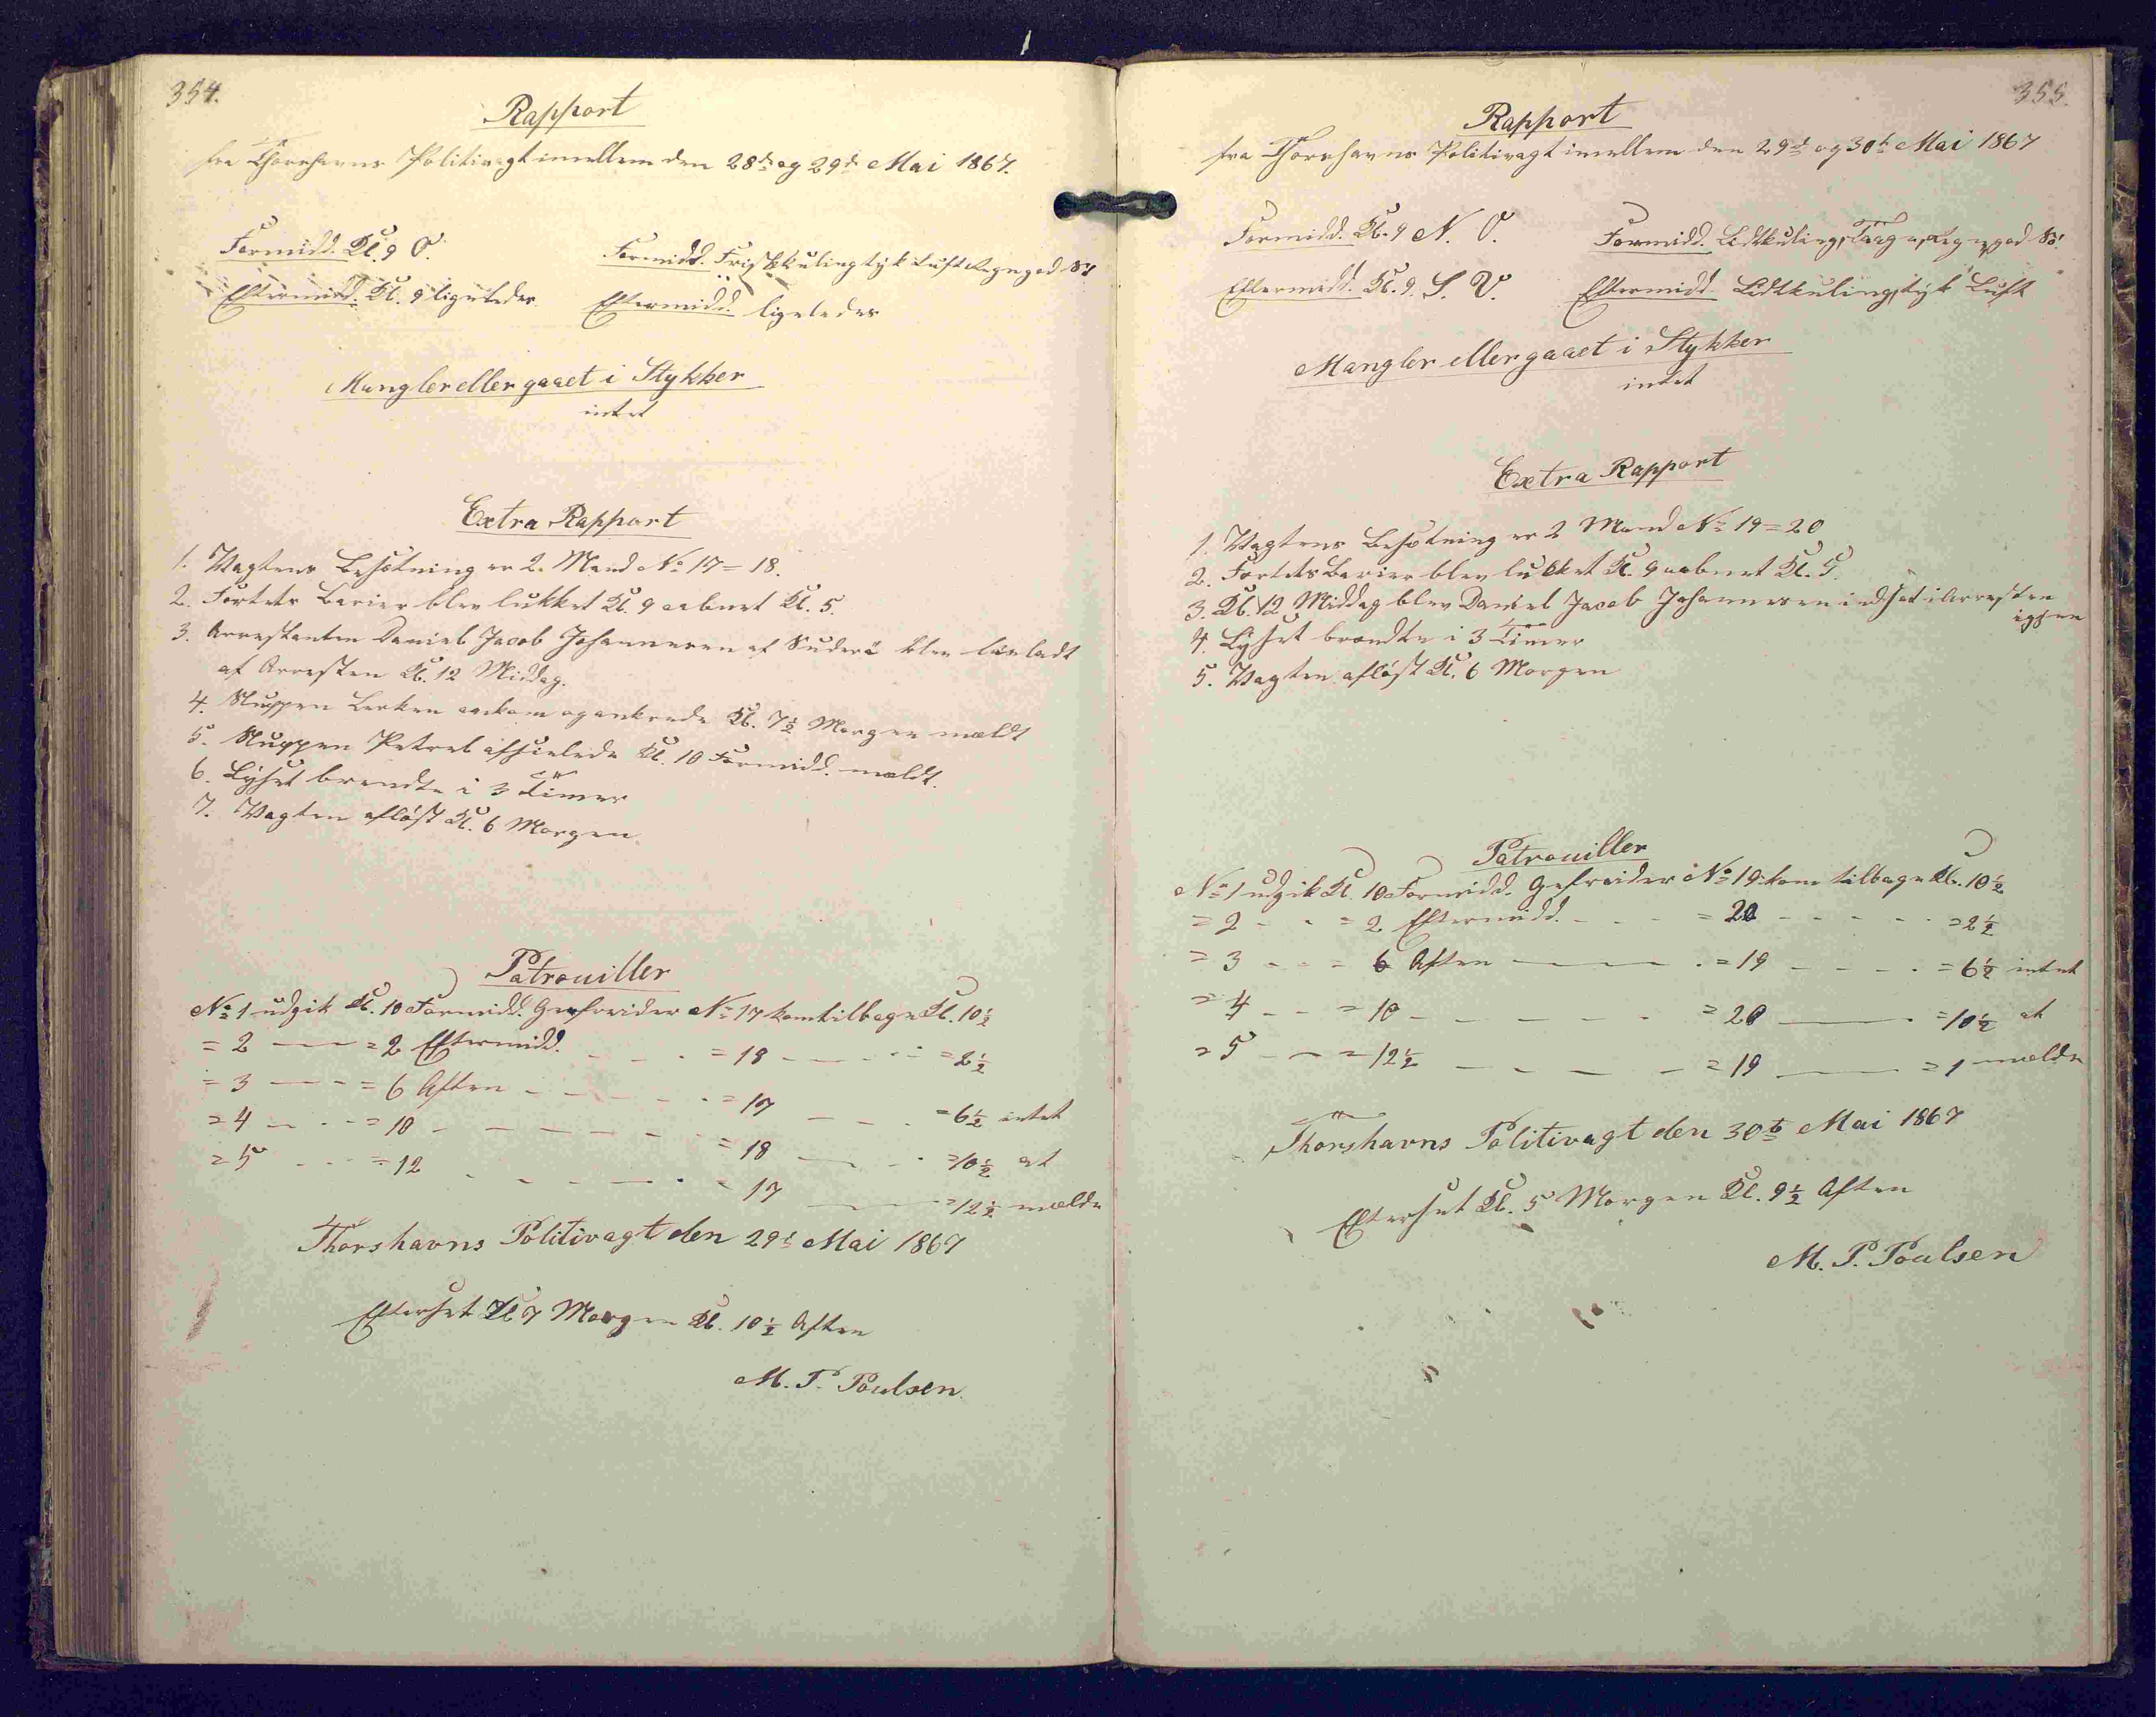 354.
Rapport
fra Thorshavns Politivagt imellem den 28de og 29de Mai 1867.
Formidd. Kl. 9 O.
Formidd. Frisk Kuling tyk Luft Regn god Sö
Eftermidd. Kl. 9 ligeledes
Eftermidd. ligeledes
Mangler eller gaaet i Stykker
intet
Extra Rapport
1. Vagtens Besætning er 2. Mand No 17 = 18.
2. Fortets Barier blev lukket Kl. 9 aabnet Kl. 5.
3. Arrestanten Daniel Jacob Johannesen af Suderö blev lösladt
af Arresten Kl. 12 Middag.
4. Sluppen Lerken ankom og ankrede Kl. 7½ Morgen mældt
5. Sluppen Petrel afseilede Kl. 10 Formidd. mældt.
6. Lyset brændte i 3 Timer
7. Vagten aflöst Kl. 6 Morgen.
Patrouiller
No 1 udgik Kl. 10 Formidd. Gefreider No 17 kom tilbage Kl. 10½
= 2 — = 2 Eftermidd. - - - = 18 — - - = 2½
= 3 — - = 6 Aften - - - - = 17 — - - = 6½ intet
= 4 - - = 10 - - - - - = 18 — - - = 10½ at
= 5 - - = 12 - - - — - = 17 — = 12½ mælde
Thorshavns Politivagt den 29de Mai 1867
Efterset Kl 7 Morgen Kl. 10½ Aften
M. P. Poulsen.
355.
Rapport
fra Thorshavns Politivagt imellem den 29de og 30te Mai 1867
Formidd. Kl. 9 N. O.
Formidd. Lidtkuling, Taage, Regn, god Sö.
Eftermidd. Kl. 9. S. V.
Eftermidd. Lidtkuling, tyk Luft
Mangler eller gaaet i Stykker
intet
Extra Rapport
1. Vagtens Besætning er 2 Mand No 19 = 20
2. Fortets Barier blev lukket Kl. 9 aabnet Kl. 5.
3. Kl. 12 Middag blev Daniel Jacob Johannesen indsat i Arresten
igjen
4. Lyset brændte i 3 Timer
5. Vagten aflöst Kl. 6 Morgen
Patrouiller
No 1 udgik Kl. 10 Formidd. Gefreider No 19 kom tilbage Kl. 10½
= 2 - - = 2 Eftermidd. - - - = 20 - - - - = 2½
= 3 - - = 6 Aften — — - = 19 - - - = 6½ intet
= 4 - - = 10 - - - - = 20 — - = 10½ at
= 5 - - = 12½ - - - - = 19 — = 1 mælde
Thorshavns Politivagt den 30te Mai 1867
Efterset Kl. 5 Morgen Kl. 9½ Aften
M. P. Poulsen